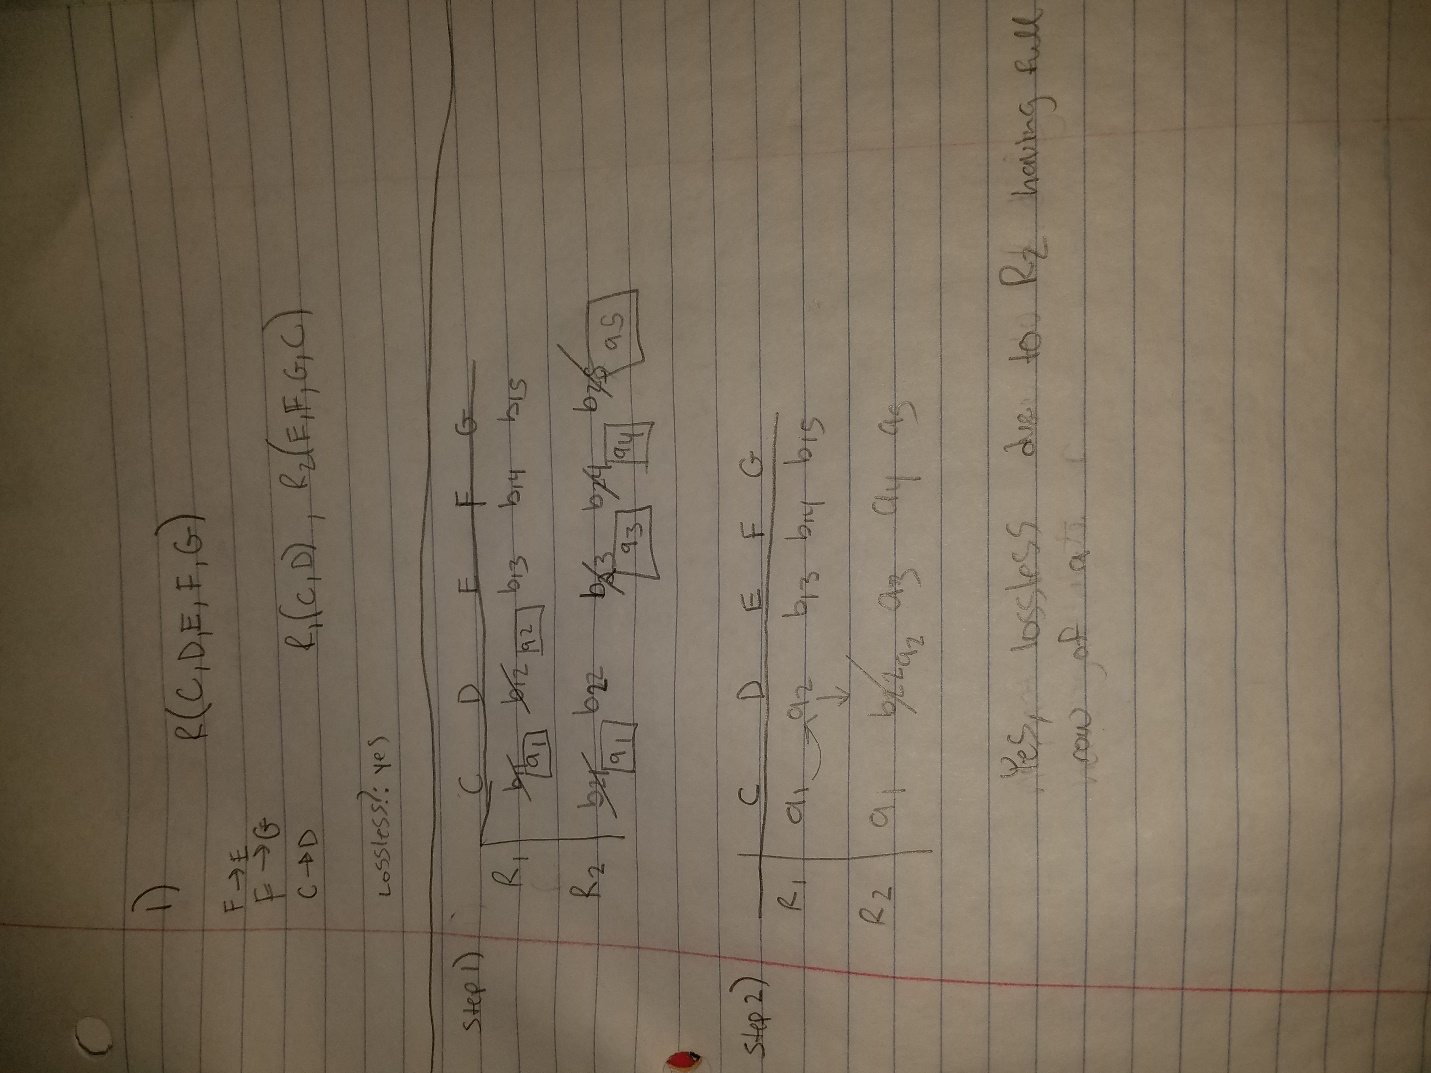 1)
R(C,D,E,F,G)
F→E
F→G
C→D
R1(C,D), R2(E,F,G,C)
Lossless?: yes
Step 1)
C D E F G
R1 b11 a1 b12 a2 b13 b14 b15
R2 b21 a1 b22 b23 a3 b24 a4 b25 a5
Step 2)
C D E F G
R1 a1 → a2 b13 b14 b15
↓
R2 a1 b22 a2 a3 a4 a5
Yes, lossless due to R2 having full
row of a